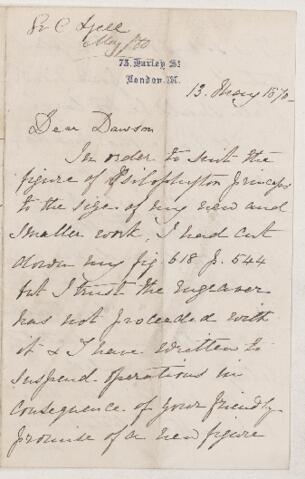 Sr C Lyell
May /70
73, Harley St
London. W.
13. May 1870
Dear Dawson
In order to suit the
figure of Psilophyton Princeps
to the size of my new and
smaller work, I had cut
down my fig 618 p. 544
but I trust the engraver
has not proceeded with
it & I have written to
suspend operations in
consequence of your friendly
promise of a new figure